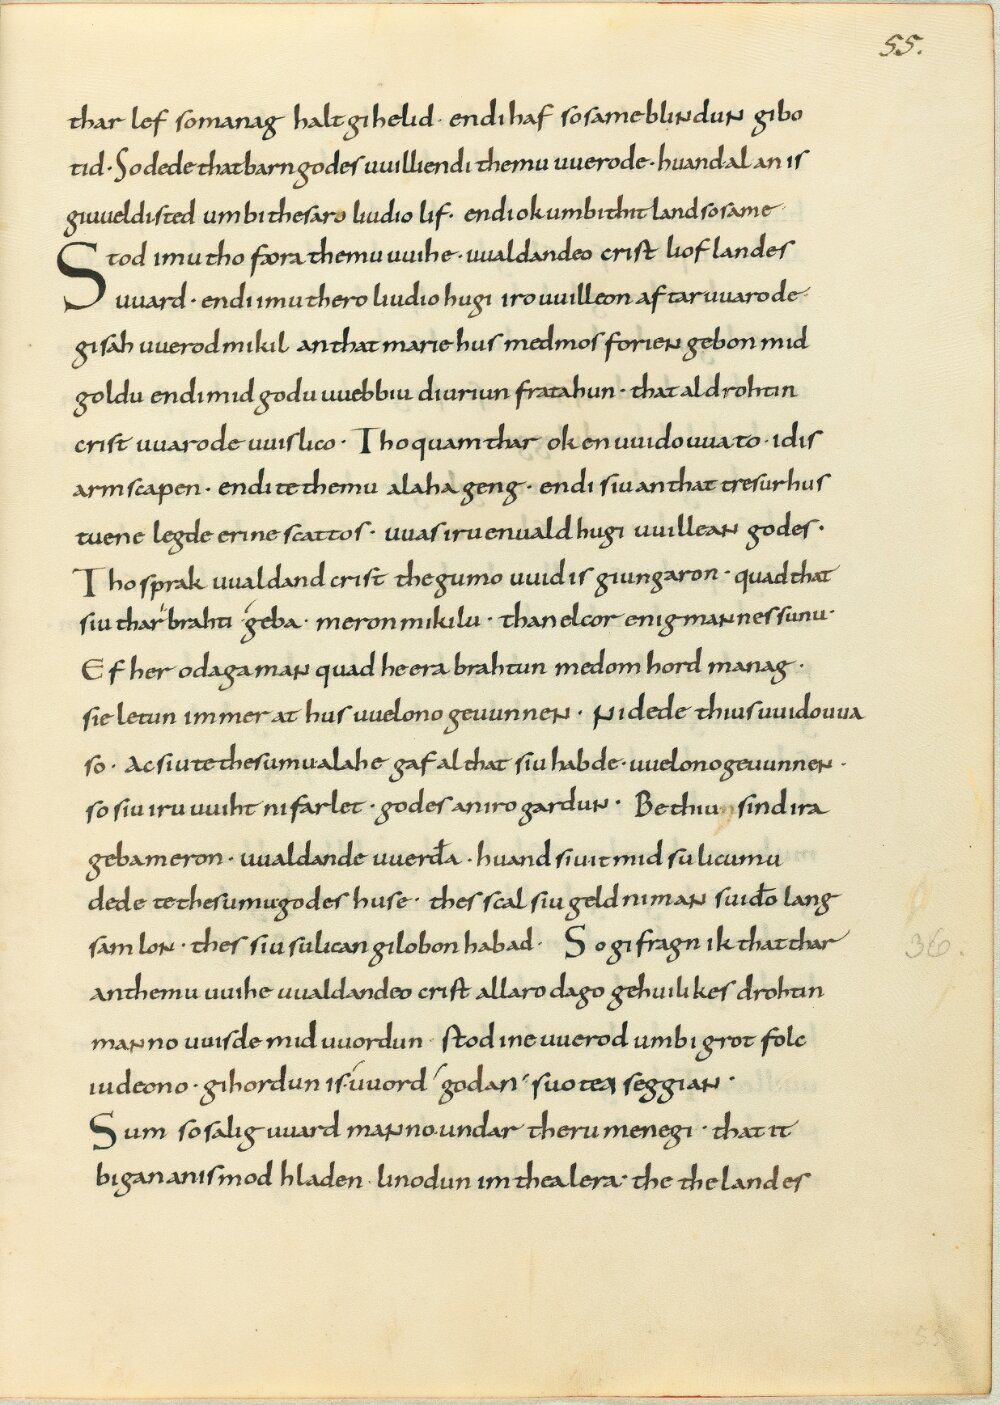 55.
thar lef somanag halt gihelid · endi haf so same blindun gibo
tid · So dede that barn godes uuilliendi themu uuerode · huand al an is
giuueldi sted umbi thesaro liudio lif · endi ok umbi thit land so same
Stod imu tho fora themu uuihe · uualdandeo crist liof landes
uuard · endi imu thero liudio hugi iro uuilleon aftar uuarode ·
gisah uuerod mikil an that marie hus medmos forien gebon mid
goldu endi mid godu uuebbiu diuriun fratahun · that al drohtin
crist uuarode uuislico · Tho quam thar ok en uuidouua to · idis
armscapen · endi te themu alaha geng · endi siu an that tresurhus
tuene legde erine scattos · uuas iru enuald hugi uuillean godes ·
Tho sprak uualdand crist the gumo uuid is giungaron · quad that
siu thar brahti geba · meron mikilu · than elcor enig mannes sunu ·
Ef her odaga man quad he era brahtun medomhord manag ·
sie letun im mer at hus uuelono geuunnen · Ni dede thius uuidouua
so · Ac siu te thesumu alahe gaf al that siu habde · uuelono geuunnen ·
so siu iru uuiht ni farlet · godes an iro gardun · Be thiu sind ira
geba meron · uualdande uuerđa · huand siu it mid sulicumu
dede te thesumu godes huse · thes scal siu geld niman suiđo lang
sam lon · thes siu sulican gilobon habad · So gifragn ik that thar
an themu uuihe uualdandeo crist allaro dago gehuilikes drohtin
manno uuisde mid uuordun · Stod ine uuerod umbi grot folc
iudeono · gihordun is uuord godan suotea seggian ·
Sum so salig uuard manno undar theru menegi · that it
bigan an is mod hladen · linodun im thea lera · the the landes
36.
55